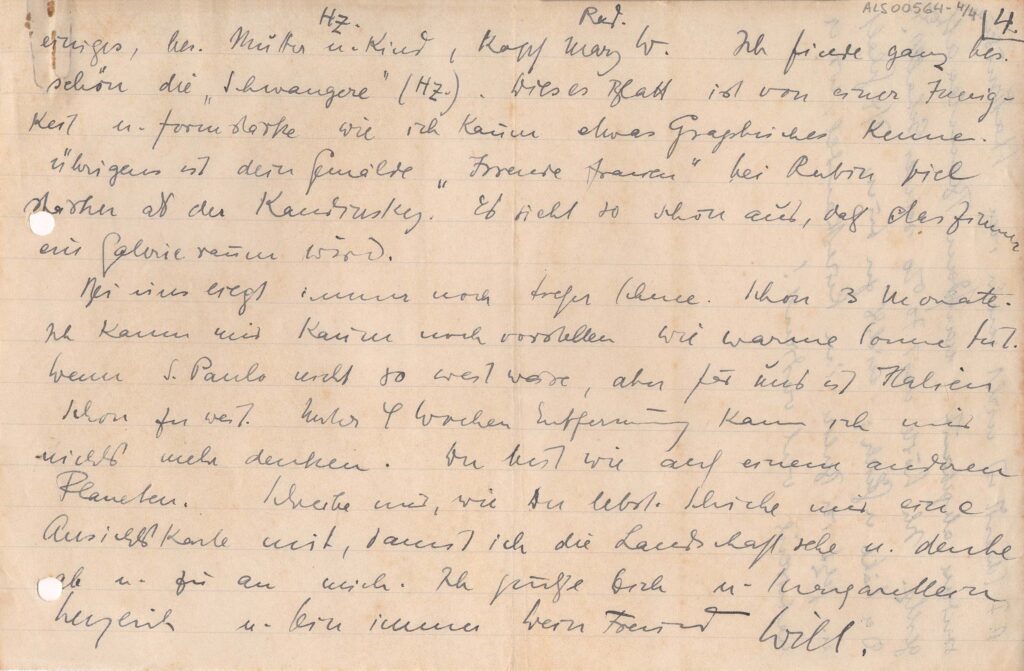 ALS00564-4/4
4.
HZ. Rad.
einiges, bes. Mutter u. Kind, Kopf Mary W. Ich finde ganz bes.
schön die „Schwangere“ (HZ.). Dieses Blatt ist von einer Innig-
keit u. Formstärke wie ich kaum etwas Graphisches kenne.
Übrigens ist dein Gemälde „Irrende Frauen“ bei Rubin viel
stärker als der Kandinsky. Es sieht so schön aus, daß das Zimmer
ein Galerieraum wird.
Bei uns liegt immer noch tiefer Schnee. Schon 3 Monate.
Ich kann mir kaum noch vorstellen wie warme Sonne tut.
Wenn S. Paulo nicht so weit wäre, aber für uns ist Italien
schon zu weit. Unter 4 Wochen Entfernung kann ich mir
nichts mehr denken. Du bist wie auf einem anderen
Planeten. Schreibe mir, wie Du lebst. Schicke mir eine
Ansichtskarte mit, damit ich die Landschaft sehe u. denke
ab u. zu an mich. Ich grüße Dich u.
herzlich u. bin immer Dein Freund Will.